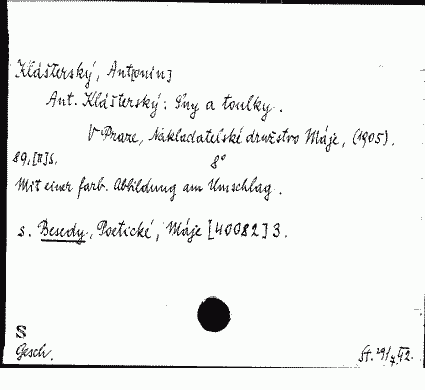 Klášterský, Ant[onin]
Ant. Klášterský: Sny a toulky.
V Praze, Nakladatelské družstvo Máje, (1905).
89, [II] S, 8°
Mit einer farb. Abbildung am Umschlag.
s. Besedy, Poetické, Máje [40082] 3.
S
Gesch.
St. 29/4.42.